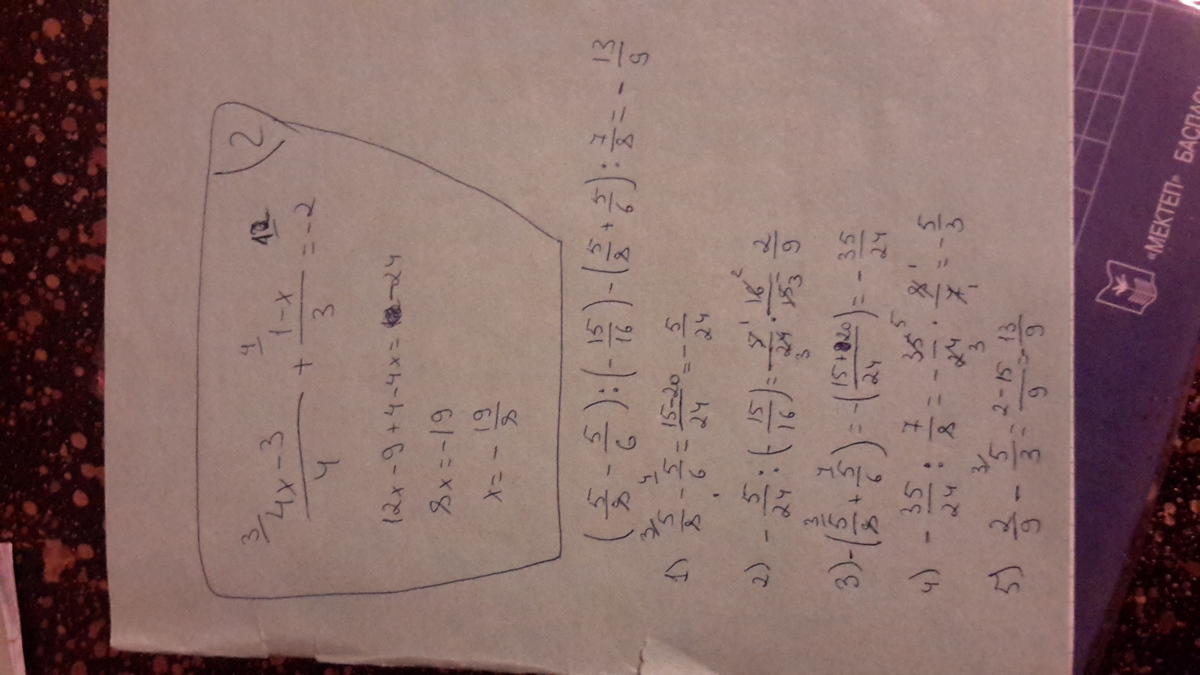 2
3/ (4x-3)/4 + 4/ (1-x)/3 = -2 12
12x-9+4-4x=-24
8x=-19
x=-19/8
(5/8 - 5/6) : (-15/16) - (5/8 + 5/6) : 7/8 = -13/9
1) 3/ 5/8 - 4/ 5/6 = (15-20)/24 = -5/24
2) -5/24 : (-15/16) = -5/24 · 16/15 2/9
3) -(3/ 5/8 + 4/ 5/6) = -((15+20)/24) = -35/24
4) -35/24 : 7/8 = -35/24 · 8/7 = -5/3
5) 2/9 - 3/ 5/3 = (2-15)/9 = -13/9
«МЕКТЕП» БАСПАС